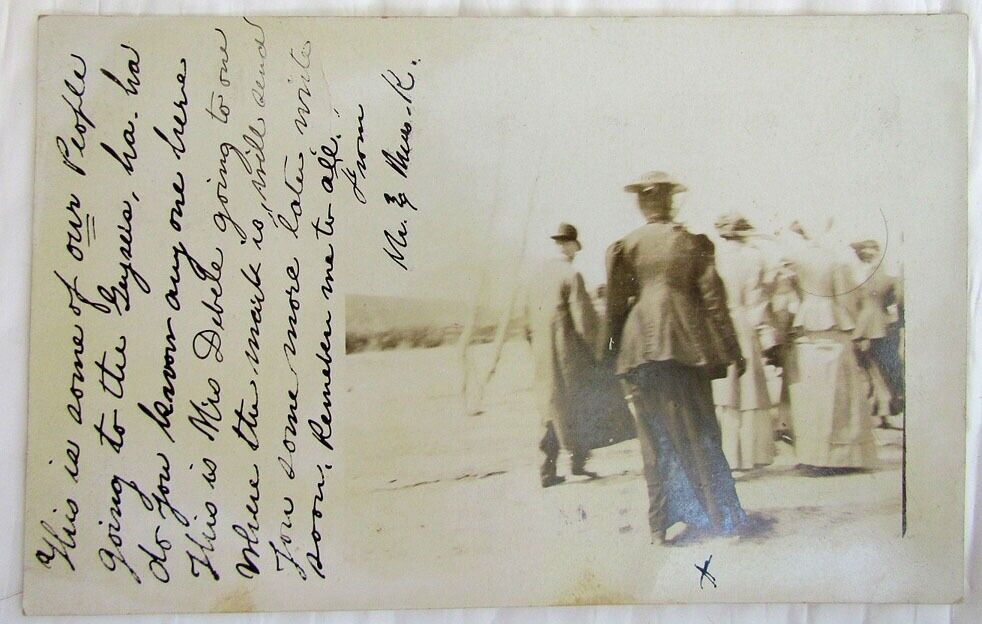 This is some of our People
going to the Gysers, ha. ha
do you know any one here
This is Mrs Debele going to one
where the mark is, will send
you some more later write
soon. Remember me to all.
From
Mr. & Mrs. K.
x